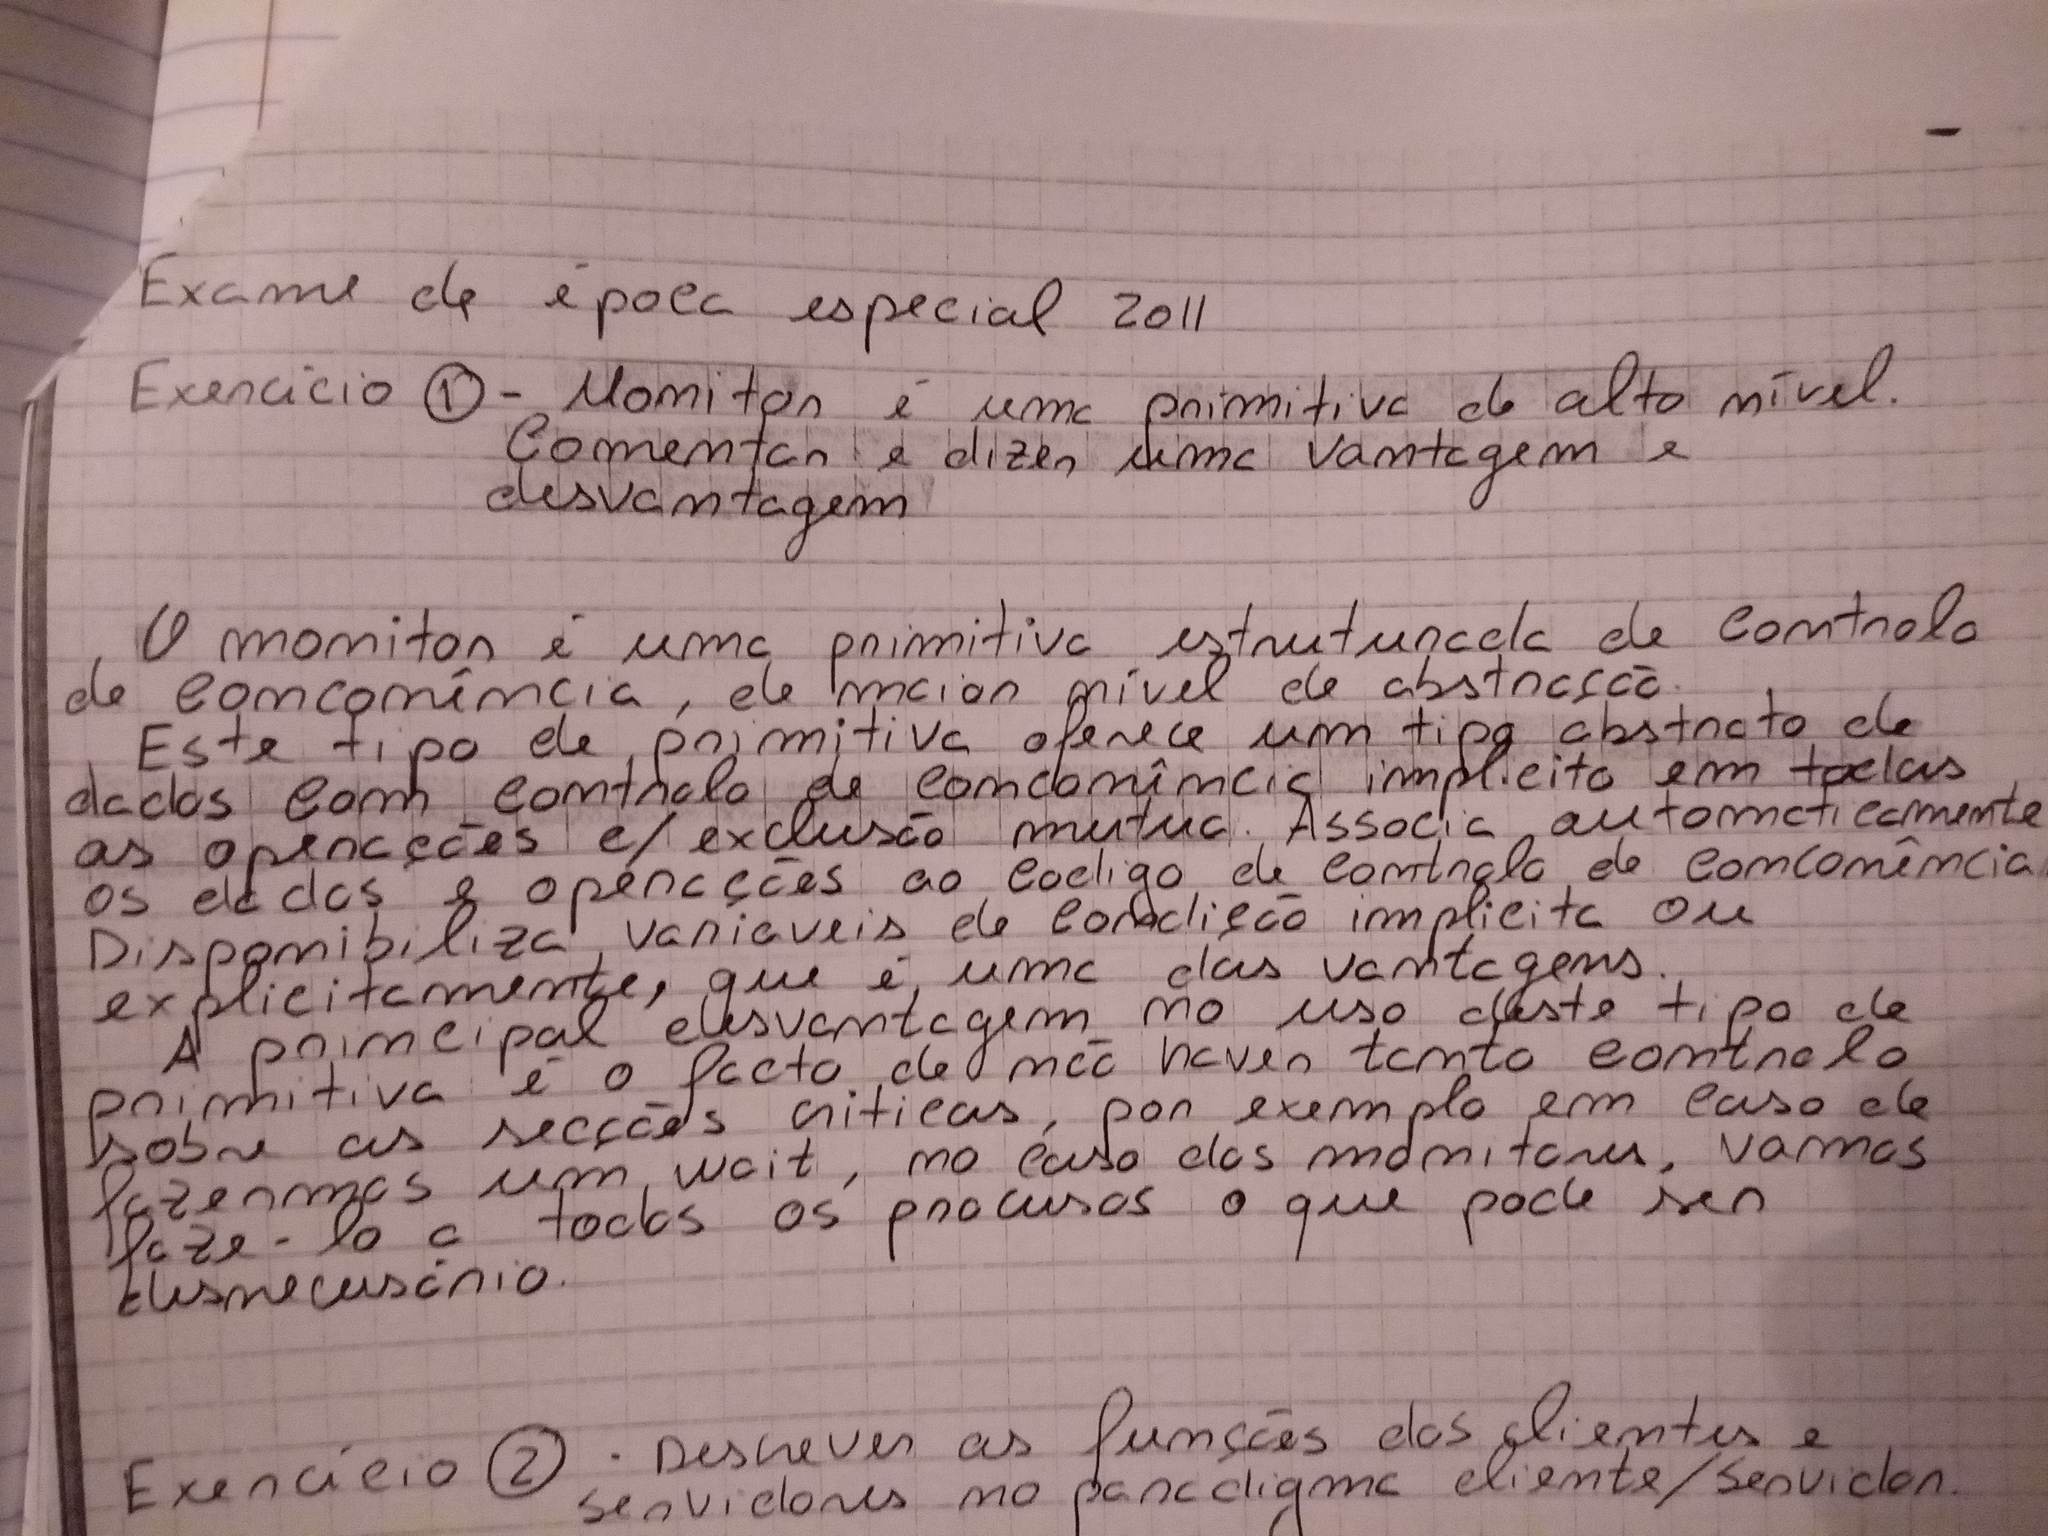 Exame de época especial 2011
Exercício ① - Monitor é uma primitiva de alto nível.
Comentar e dizer uma vantagem e
desvantagem
O monitor é uma primitiva estruturada de controlo
de concorrência, de maior nível de abstração.
Este tipo de primitiva oferece um tipo abstrato de
dados com controlo de concorrência implicito em todas
as operacções c/ exclusão mutua. Associa automaticamente
os dados e operacções ao codigo de controlo de concorrência.
Disponibiliza variaveis de condição implicita ou
explicitamente, que é uma das vantagens.
A principal desvantagem no uso deste tipo de
primitiva é o facto de não haver tanto controlo
sobre as secções criticas, por exemplo em caso de
fazermos um wait, no caso dos monitores, vamos
faze-lo a todos os processos o que pode ser
desnecessário.
Exercício ② - Descrever as funções dos clientes e
servidores no paradigma cliente/servidor.